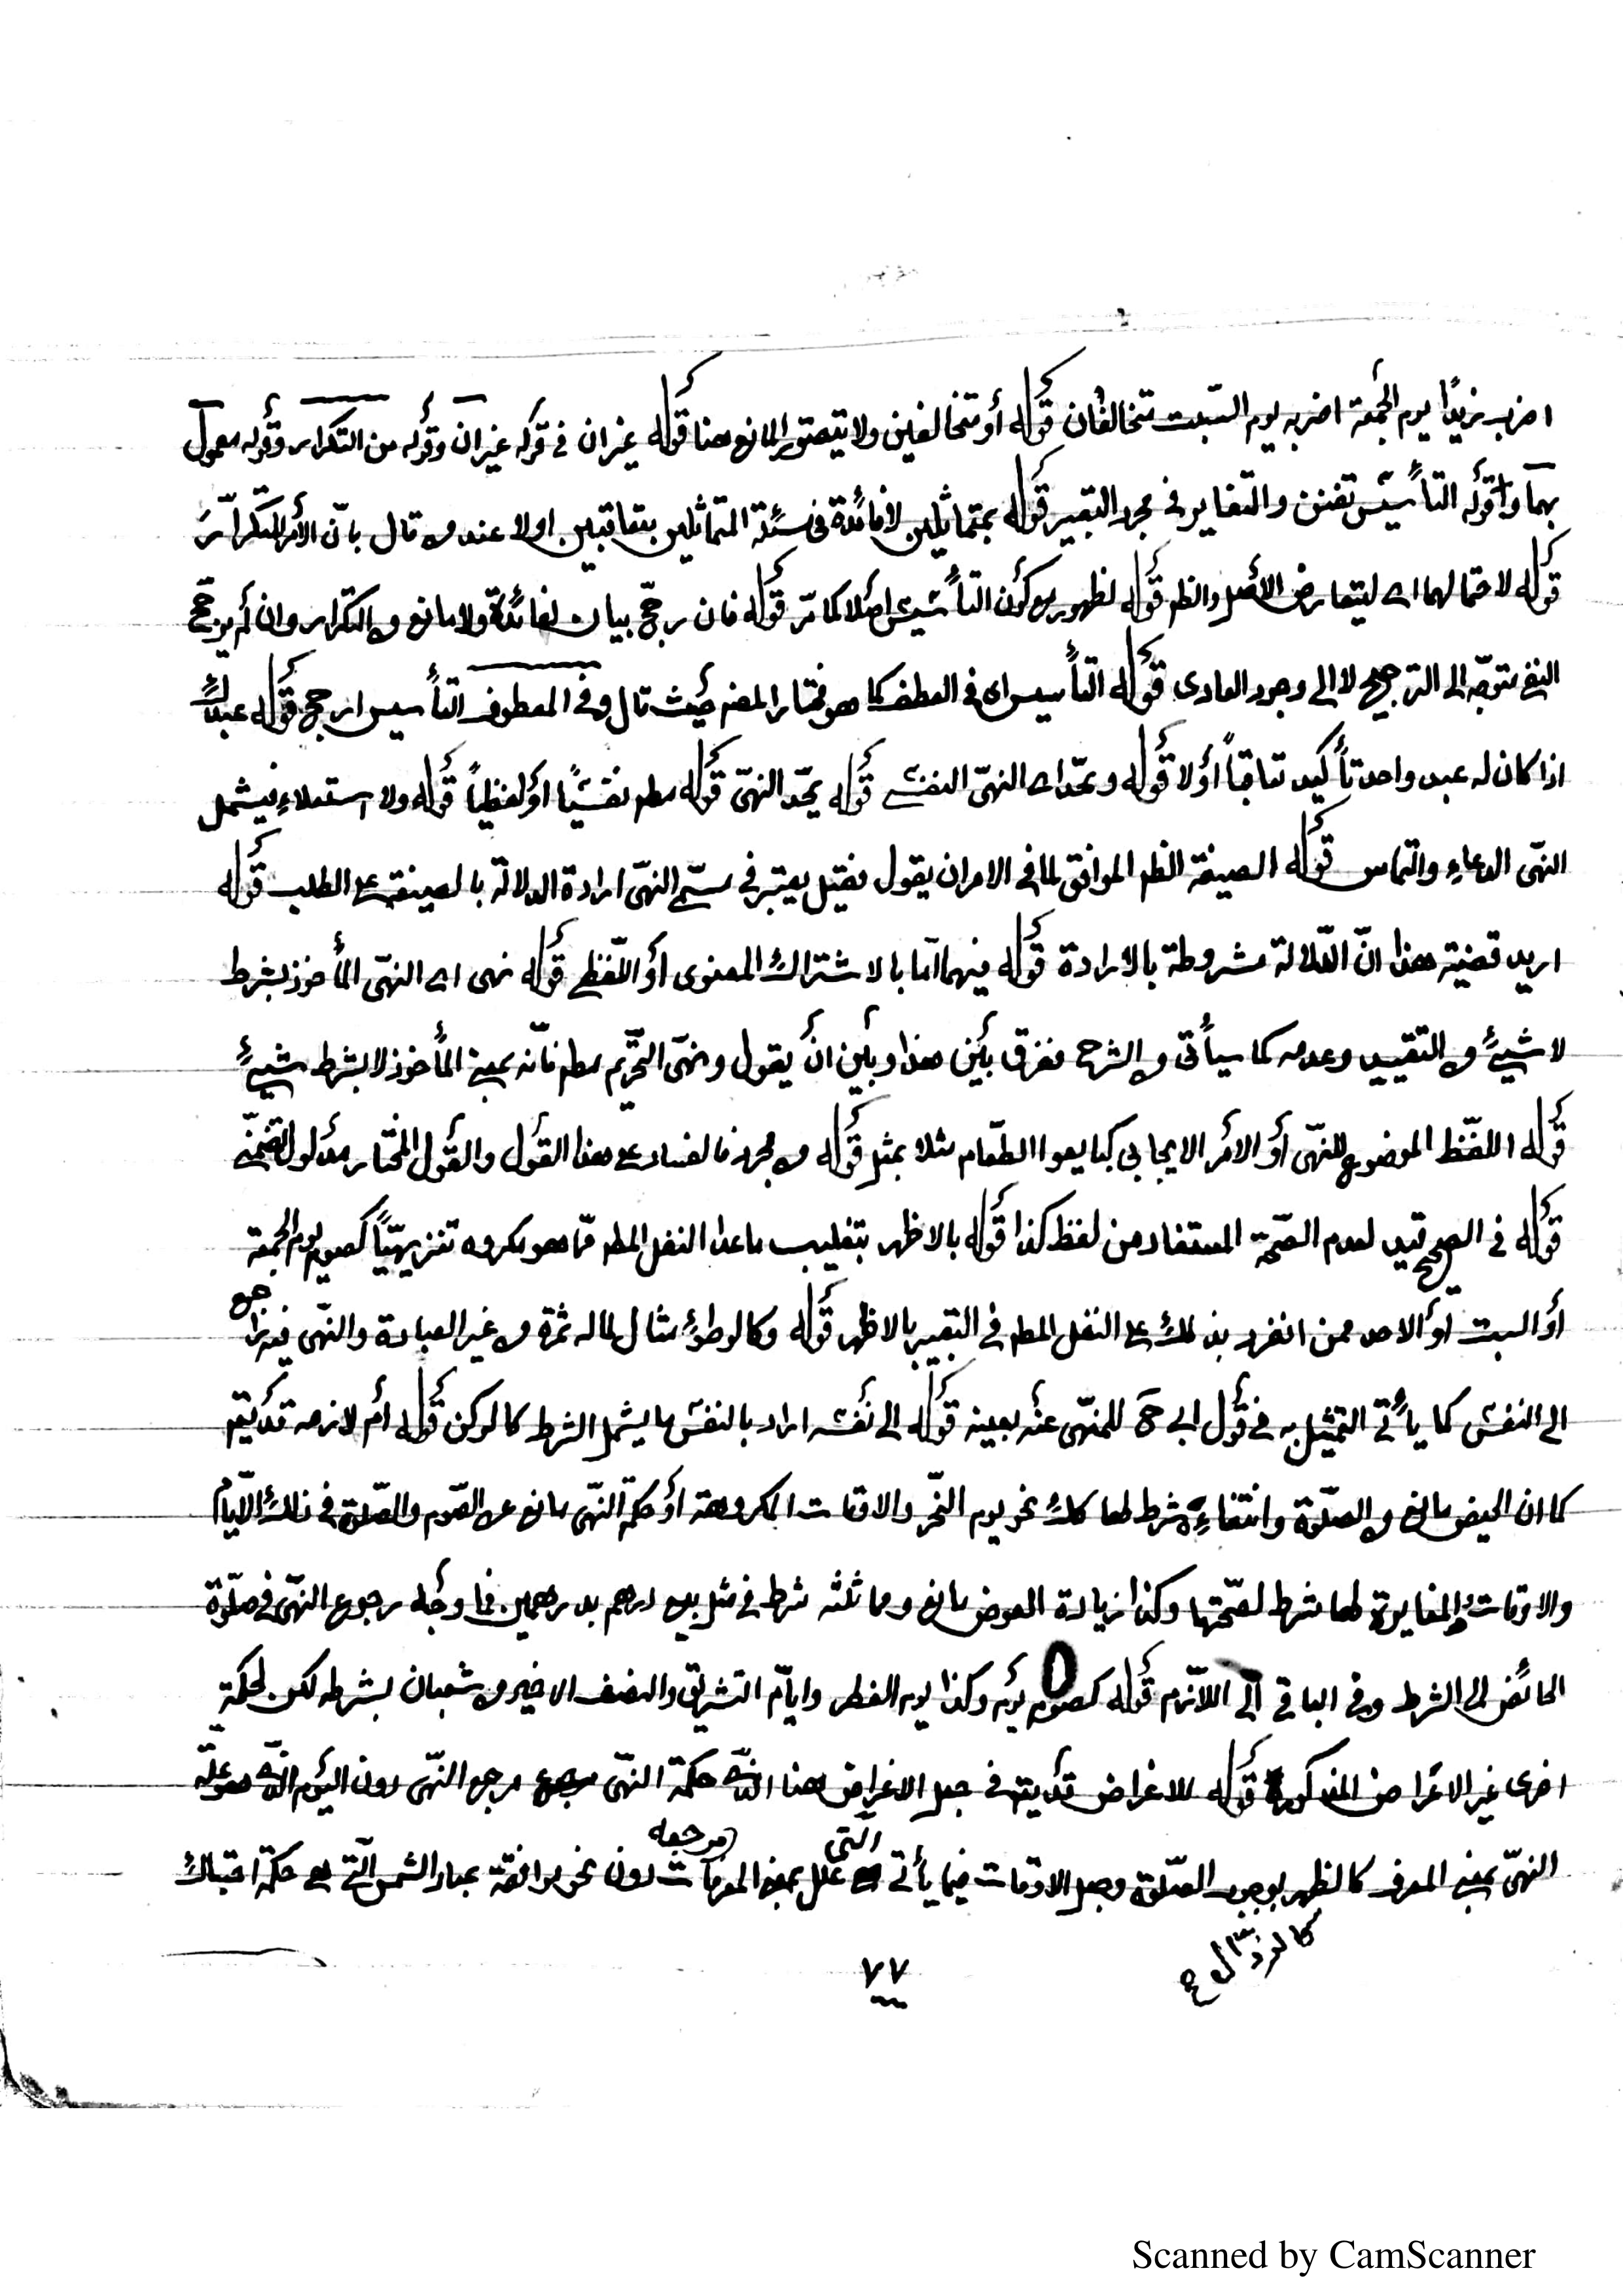 اضرب زيدًا يوم الجمعة اضربه يوم السّبت متخالفان قوله أو متخالفين ولا يتصوّر المانع هنا قوله غيران في قوله غيران وقوله من التكرار وقوله معمول
بهما وقوله التأسيس تفنن والتغاير في مجرد التعبير قوله بمتماثلين لا فائدة في المتماثلين بتعاقبين اولا عند من قال بانّ الأمر للتكرار
قوله لاحتمالهما اى ليتعارض الأصل والظم قوله لظهور كون التأسيس اصلا كما مرّ قوله فان رجّح بيان لفائدة ولا مانع من التكرار وان لم يرجّح
النفي متوجّه الى الترجيح لا الى وجود العادى قوله التأسيس اى في العطف كما هو مختار المصنف حيث قال وفي المعطوف التأسيس ارجح قوله عبدك
اذا كان له عبد واحد تأكيد تعاقبا أولا قوله ويحدّ اى النهى النفسى قوله يحدّ النهىّ قوله مطم نفسيًا أو لفظيًا قوله ولا استعلاء فيشمل
النهى الدعاء والتماس قوله الصيغة الظم الموافق لما في الامر ان يقول فقيل يعتبر في مسمّى النهىّ ارادة الدلالة بالصيغة على الطلب قوله
اريد قضية هذا انّ الدّلالة مشروطة بالارادة قوله فيهما اما بالاشتراك المعنوى أو اللّفظى قوله نهى اى النهىّ المأخوذ بشرط
لا شيئ من التقييد وعدمه كما سيأتى من الشرح ففرق بين هذا وبين انّ يقول ونهىّ التحريم مطم فانّه بمعنى المأخوذ لا بشرط شيئ
قوله اللّفظ الموضوع للنهىّ أو الأمر الايجابي كبايعوا الطّعام مثلا بمثل قوله من مجرد فالفساد على هذا القول والقول المختار مدلول تضمنّى
قوله في الصحيح قيد لعدم الصّحة المستفاد من لفظ كذا قوله بالاظهر بتغليب ما عدا النفل المطم ممّا هو مكروه تنزيهيّا كصوم يوم الجمعة
أو السبت او الاحد ممن انفرد بذلك على النفل المطم في التعبير بالاظهر قوله وكالوطؤ مثال لما له ثمرة من غير العبادة والنهى فيه راجع
الى النفس كما يأتى التمثيل به في قول ابى ح للمنهّى عنه لعينه قوله الى نفسه اراد بالنفس ما يشمل الشرط كالركن قوله أم لازمه تدقيق
كما ان الحيض مانع من الصلوة وانتفاءه شرط لها كذلك نحو يوم النحر والاوقات المكروهة أو حكمة النهى مانع عن الصّوم والصّلوة في تلك الأيّام
والاوقات والمغايرة لها شرط لصّحتها وكذا زيادة العوض مانع ومماثلته شرط في مثل بيع درهم بدرهمين فما وجه رجوع النهىّ في صلوة
الحائض الى الشرط وفي الباقى الى اللاّزم قوله كصوم يوم وكذا يوم الفطر وايّام التشريق والنصف الاخير من شعبان بشرطه لكن لحكمة
اخرى غير الاعراض المذكور قوله للاعراض تدقيق في جعل الاعراض هنا الّذى حكمة النهىّ مرجع النهىّ دون اليوم الّذى هو علّة
النهىّ بمعنى المعرف كالظهر لوجوب الصّلوة وجعل الاوقات فيما يأتى الّتى علل بمعنى المعرفات مرجعه دون نحو موافقة عباد الشمس الّتى هى حكمة احتباك
كالزوال ع
٧٧
Scanned by CamScanner